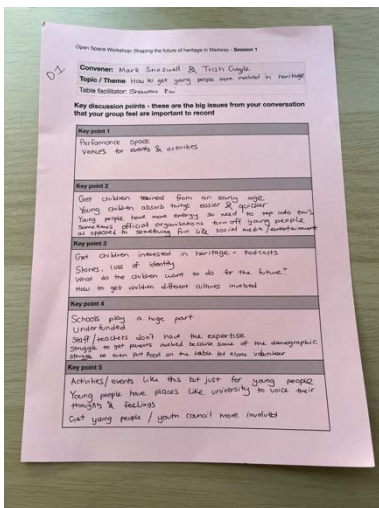 Open Space Workshop: Shaping the future of heritage in Medway - Session 1
D1
Convener: Mark Snoswell & Trish Gayle
Topic / Theme How to get young people more involved in heritage
Table facilitator:
Key discussion points - these are the big issues from your conversation
that your group feel are important to record
Key point 1
Performance space
Venues for events & activities
Key point 2
Get children from an early age
Young children absorb things easier & quicker
Young people have more energy so need to tap into this
Sometimes official organisations turn off young people
as opposed to something fun like social media/entertainment
Key point 3
Get children interested in heritage - Podcasts
Stories, loss of identity
What do the children want to do for the future?
How to get children different cultures involved
Key point 4
Schools play a huge part
Underfunded
Staff/teachers don't have the expertise
Struggle to get parents involved because some of the demographic
struggle to even put food on the table let alone volunteer
Key point 5
Activities/events like this but just for young people
Young people have places like university to voice their
thoughts & feelings
Get young people / youth council more involved